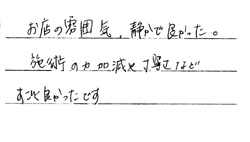 お店の雰囲気、静かで良かった。
施術の力加減や丁寧など
すごく良かったです